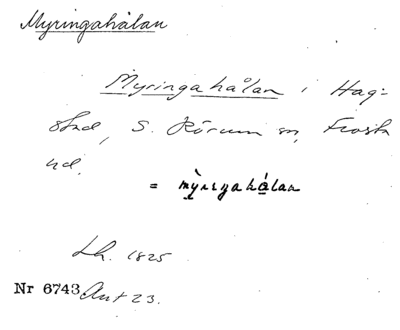 Myringahålan
Myringahålan i Hag=
stad, S. Rörum sn, Frosta
hd.
= mỳriŋahålan
Lh. 1825
Nr 6743 Ant 23.